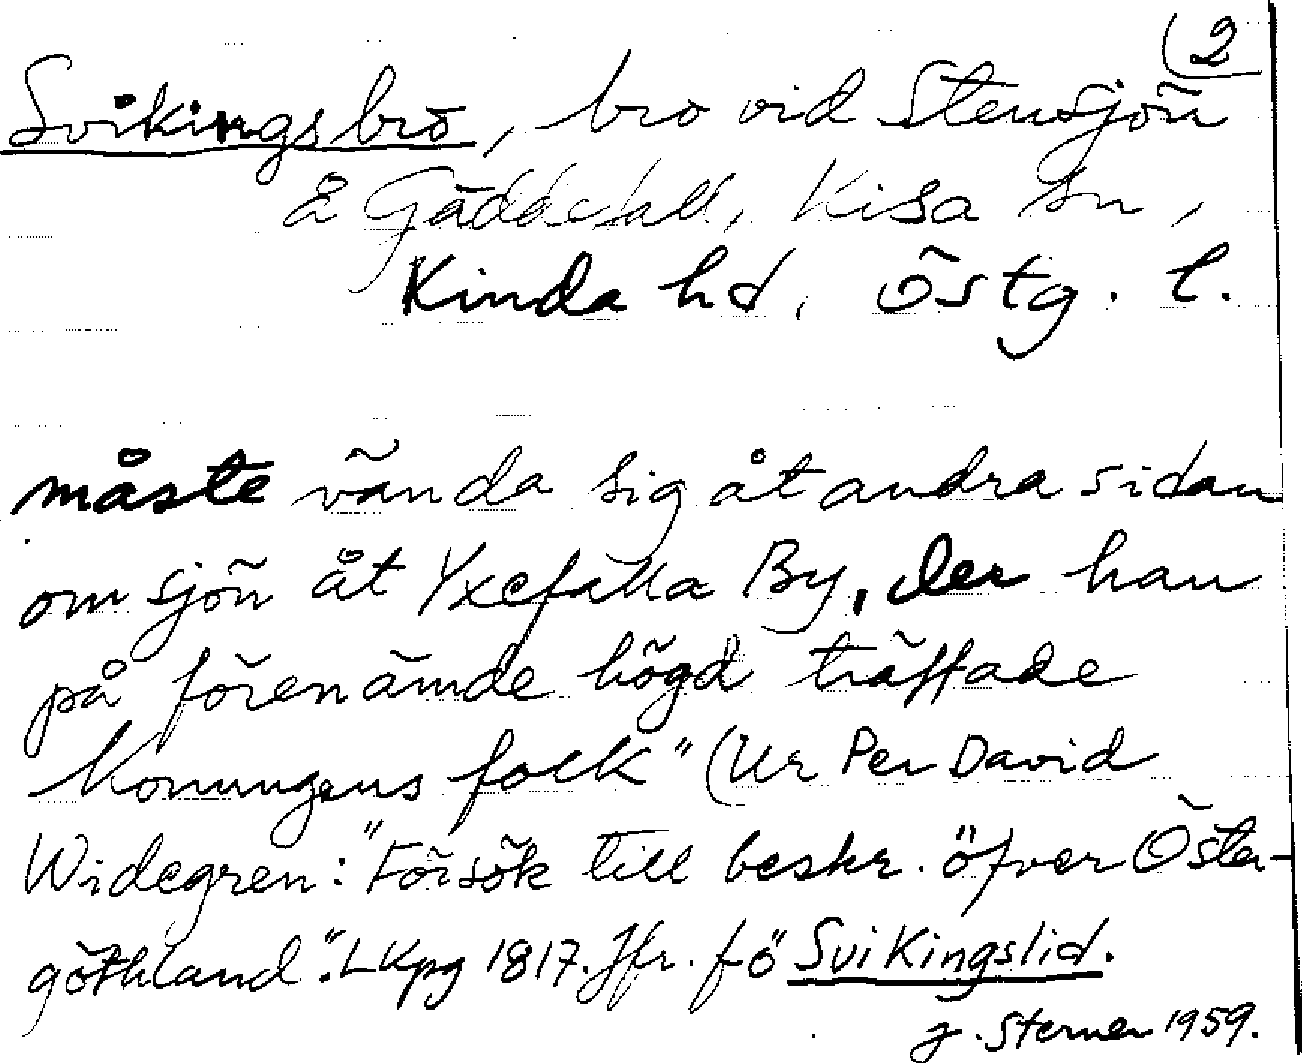 (2
Svikingsbro, bro vid Stensjön
å Gäddefall, Kisa sn,
Kinda hd, Östg. l.
måste vända sig åt andra sidan
om sjön åt Yxefälla By, der han
på förenämde högd träffade
Konungens folk" (Ur Per David
Widegren: "Försök till beskr. öfver Öster-
göthland". Lkpg 1817. Jfr. fö Svikingslid.
J. Sterner 1959.